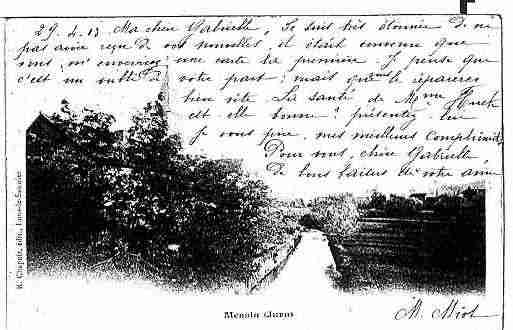 29. 4. 13 Ma chère Gabrielle, Je suis très étonnée de ne
pas avoir reçu de vos nouvelles, il était convenu que
vous m'enverriez une carte la première. Je pense que
c'est un oubli de votre part; mais que vous le réparerez
bien vite. La santé de Mme
est-elle bonne? présentez lui
je vous prie, mes meilleurs compliments
Pour vous, chère Gabrielle,
de bons baisers de votre amie
M. Miot
Menoin (Jura)
édit., Lons-le-Saunier